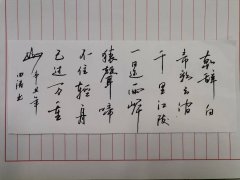 朝辞白
帝彩云间
千里江陵
一日还两岸
猿聲啼
不住轻舟
已过万重
山 辛丑年